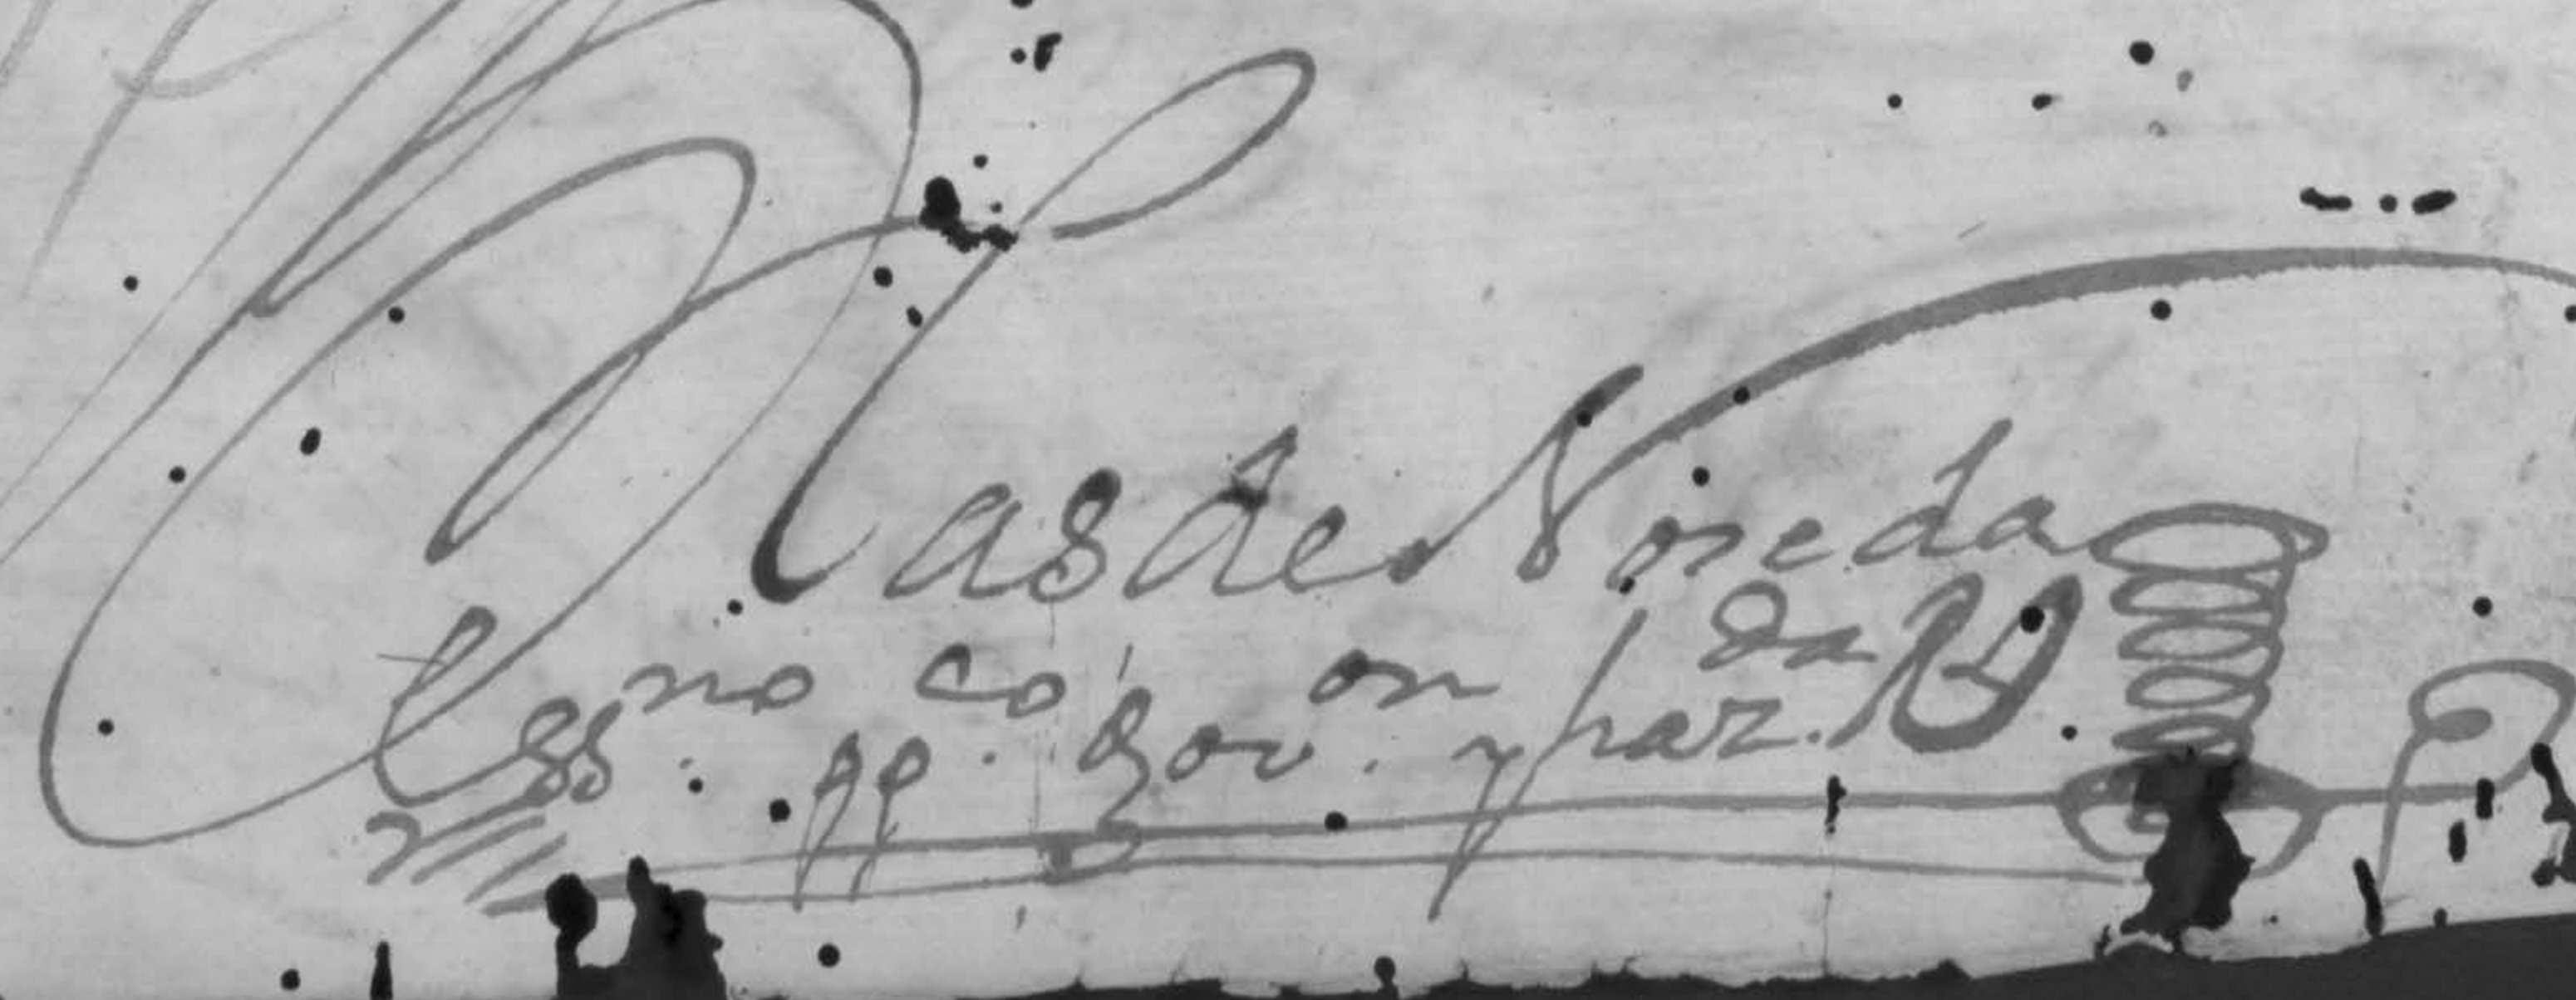 Blas de Noreda
Essno. ppco. gov.on y haz.da